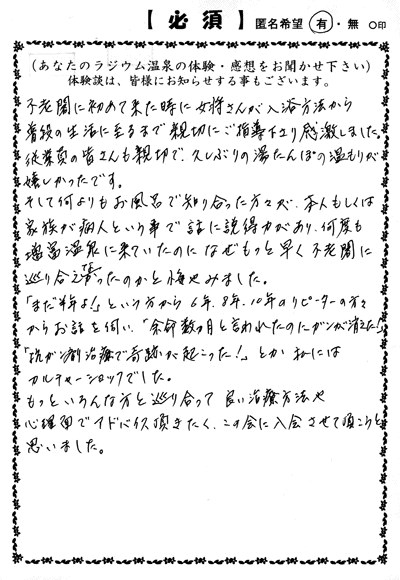 【必須】 匿名希望 有・無 ○印
(あなたのラジウム温泉の体験・感想をお聞かせ下さい)
体験談は、皆様にお知らせする事もございます。
不老閣に初めて来た時に女将さんが入浴方法から
普段の生活に至るまで親切にご指導下さり感激しました。
従業員の皆さんも親切で、久しぶりの湯たんぽの温もりが
嬉しかったです。
そして何よりもお風呂で知り合った方々が、本人もしくは
家族が病人という事で話に説得力があり、何度も
増富温泉に来ていたのになぜもっと早く不老閣に
巡り合えなかったのかと悔やみました。
「まだ半年よ!」という方から6年、8年、10年のリピーターの方々
からお話を伺い、「余命数ヶ月と言われたのにガンが消えた!」
「抗がん剤治療で奇跡が起こった!」とか私には
カルチャーショックでした。
もっといろんな方と巡り合って良い治療方法や
心理面でアドバイス頂きたく、この会に入会させて頂こうと
思いました。